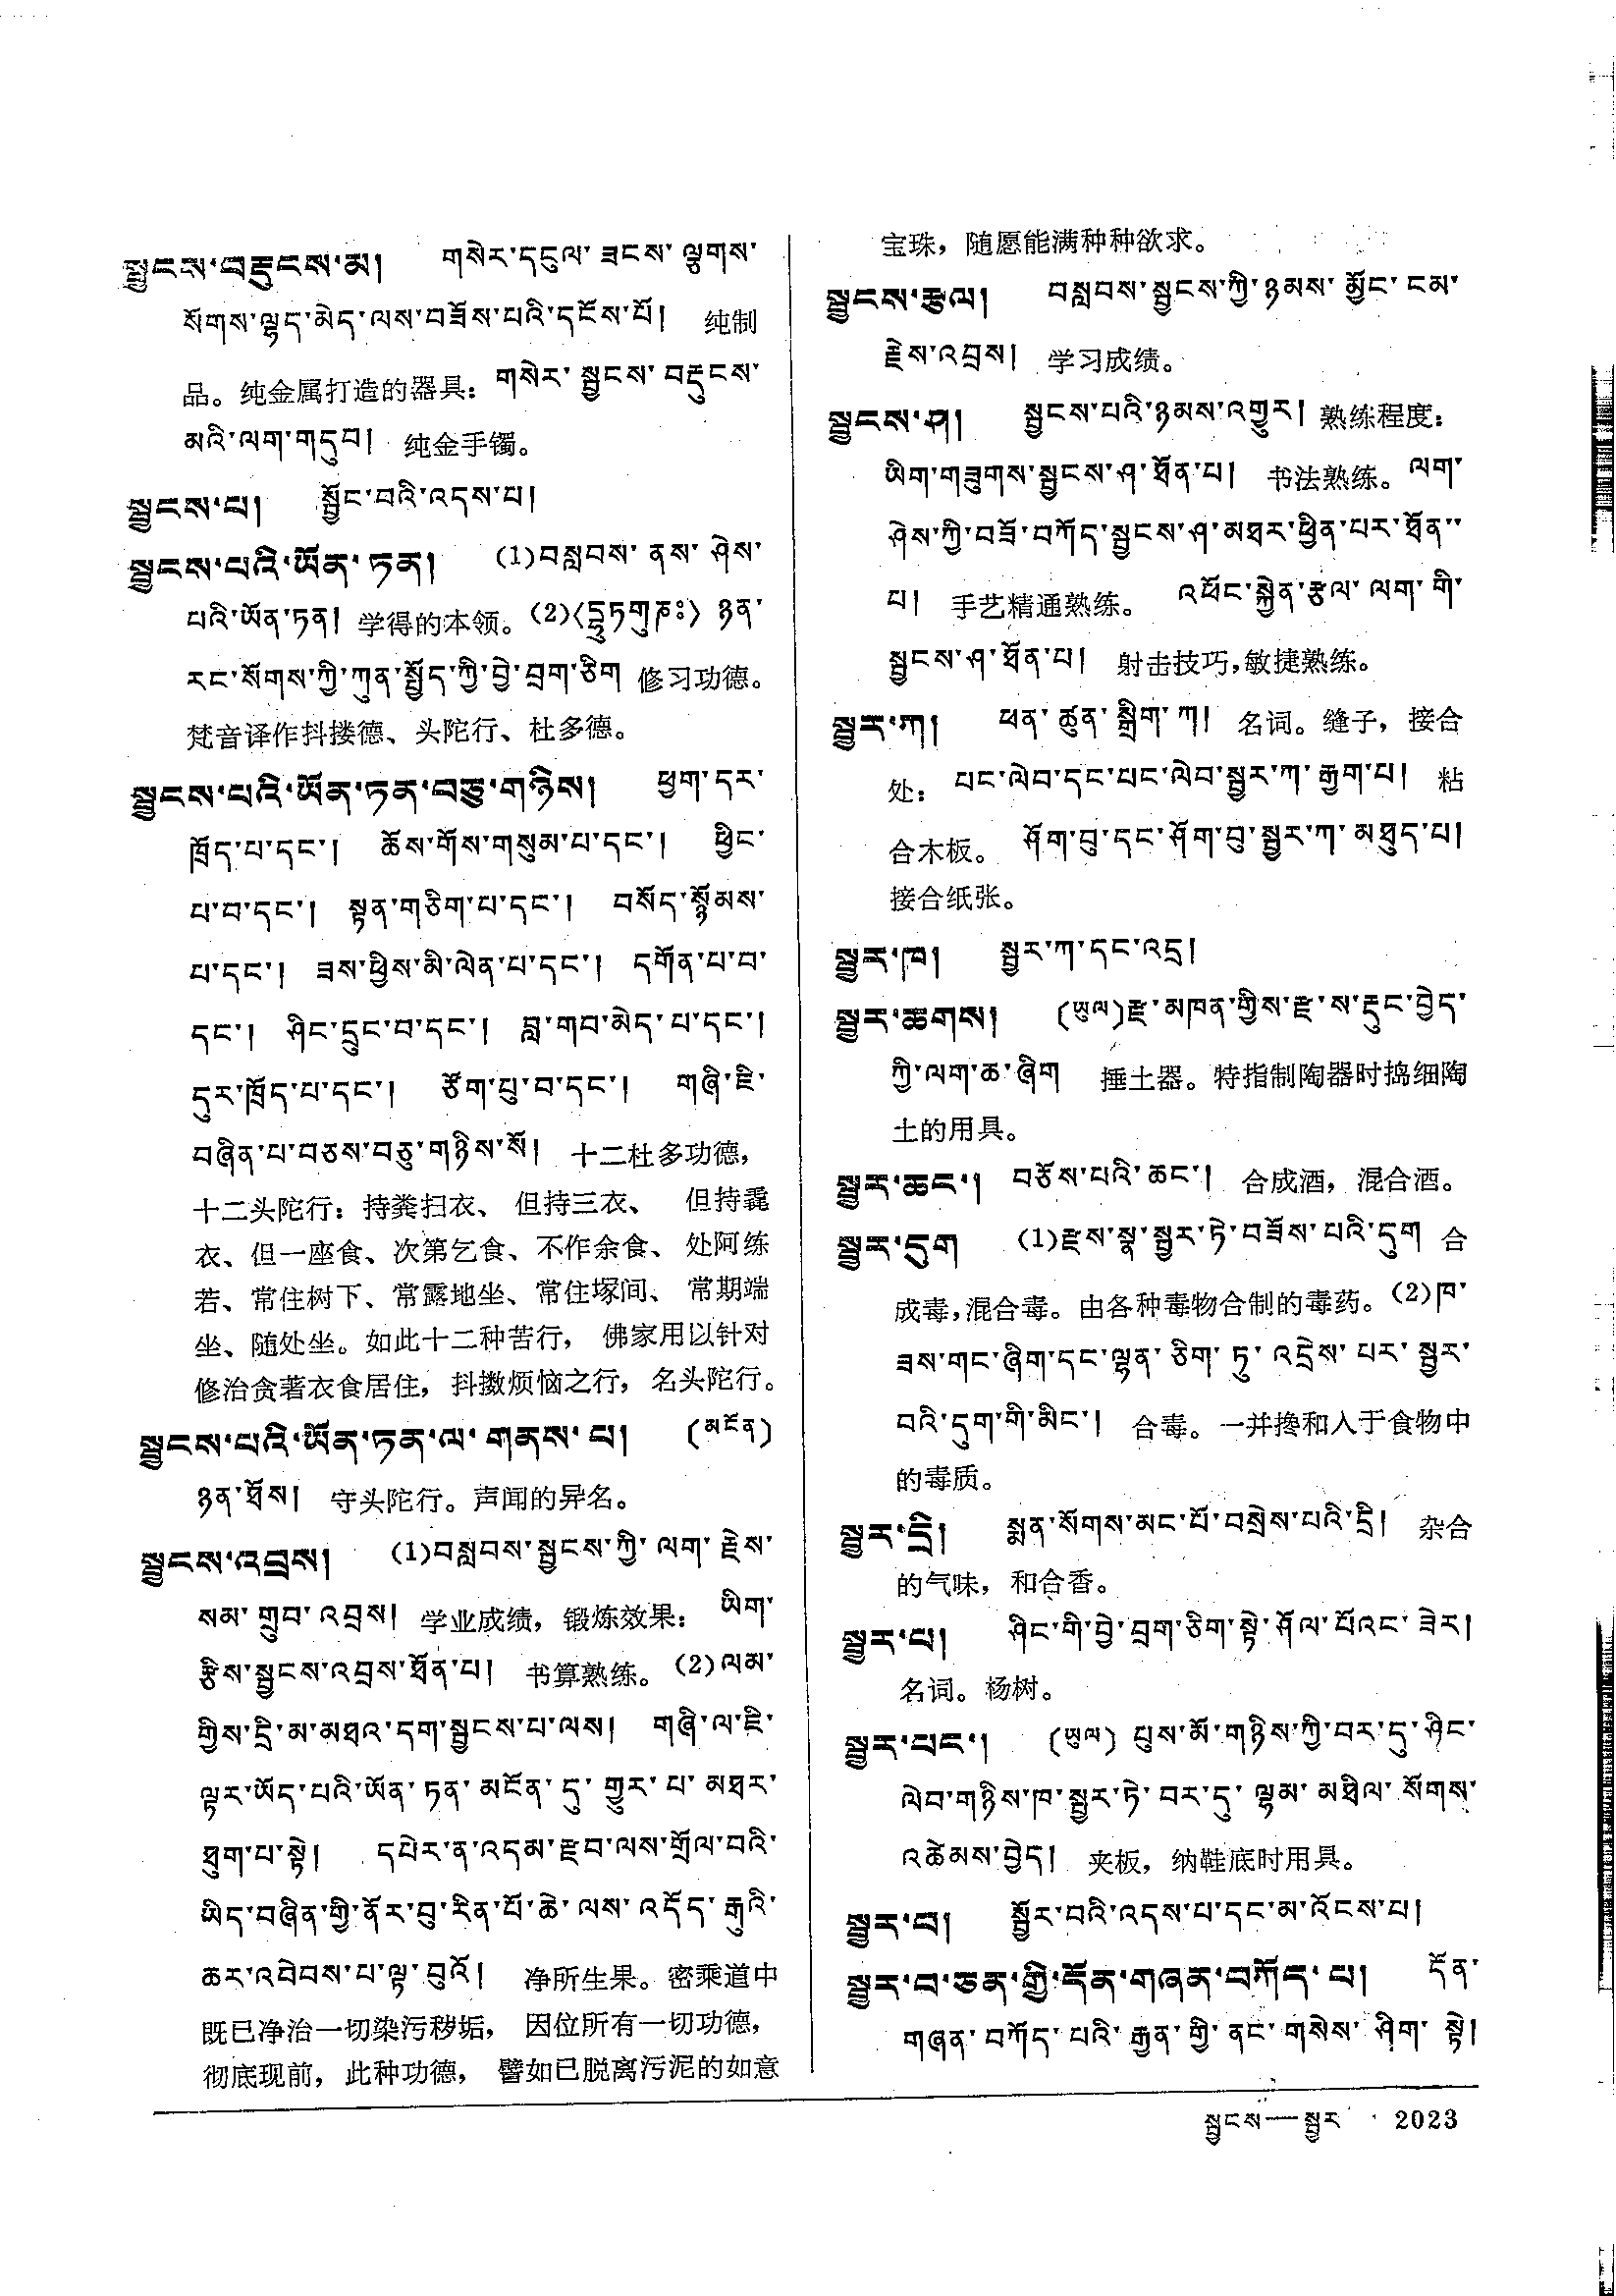 སྦྱངས་བརྡུངས་མ། གསེར་དངུལ་ཟངས་ལྕགས་
སོགས་ལྷད་མེད་ལས་བཟོས་པའི་དངོས་པོ། 纯制
品。纯金属打造的器具：གསེར་སྦྱངས་བརྡུངས་
མའི་ལག་གདུབ། 纯金手镯。
སྦྱངས་པ། སྦྱོང་བའི་འདས་པ།
སྦྱངས་པའི་ཡོན་ཏན། (1)བསླབས་ནས་ཤེས་
པའི་ཡོན་ཏན། 学得的本领。(2)〈དྷཱུཏགུཎཿ〉ཉན་
རང་སོགས་ཀྱི་ཀུན་སྤྱོད་ཀྱི་བྱེ་བྲག་ཅིག 修习功德。
梵音译作抖搂德、头陀行、杜多德。
སྦྱངས་པའི་ཡོན་ཏན་བཅུ་གཉིས། ཕྱག་དར་
ཁྲོད་པ་དང་། ཆོས་གོས་གསུམ་པ་དང་། ཕྱིང་
པ་བ་དང་། སྟན་གཅིག་པ་དང་། བསོད་སྙོམས་
པ་དང་། ཟས་ཕྱིས་མི་ལེན་པ་དང་། དགོན་པ་བ་
དང་། ཤིང་དྲུང་བ་དང་། བླ་གབ་མེད་པ་དང་།
དུར་ཁྲོད་པ་དང་། ཙོག་པུ་བ་དང་། གཞི་ཇི་
བཞིན་པ་བཅས་བཅུ་གཉིས་སོ། 十二杜多功德，
十二头陀行：持粪扫衣、但持三衣、但持毳
衣、但一座食、次第乞食、不作余食、处阿练
若、常住树下、常露地坐、常住塚间、常期端
坐、随处坐。如此十二种苦行，佛家用以针对
修治贪著衣食居住，抖擞烦恼之行，名头陀行。
སྦྱངས་པའི་ཡོན་ཏན་ལ་གནས་པ། (མངོན)
ཉན་ཐོས། 守头陀行。声闻的异名。
སྦྱངས་འབྲས། (1)བསླབས་སྦྱངས་ཀྱི་ལག་རྗེས་
སམ་གྲུབ་འབྲས། 学业成绩，锻炼效果：ཡིག་
རྩིས་སྦྱངས་འབྲས་ཐོན་པ། 书算熟练。(2)ལམ་
གྱིས་དྲི་མ་མཐའ་དག་སྦྱངས་པ་ལས། གཞི་ལ་ཇི་
ལྟར་ཡོད་པའི་ཡོན་ཏན་མངོན་དུ་གྱུར་པ་མཐར་
ཐུག་པ་སྟེ། དཔེར་ན་འདམ་རྫབ་ལས་གྲོལ་བའི་
ཡིད་བཞིན་གྱི་ནོར་བུ་རིན་པོ་ཆེ་ལས་འདོད་རྒུའི་
ཆར་འབེབས་པ་ལྟ་བུའོ། 净所生果。密乘道中
既已净治一切染污秽垢，因位所有一切功德，
彻底现前，此种功德，譬如已脱离污泥的如意
宝珠，随愿能满种种欲求。
སྦྱངས་རྩལ། བསླབས་སྦྱངས་ཀྱི་ཉམས་མྱོང་ངམ་
རྗེས་འབྲས། 学习成绩。
སྦྱངས་ཤ། སྦྱངས་པའི་ཉམས་འགྱུར། 熟练程度：
ཡིག་གཟུགས་སྦྱངས་ཤ་ཐོན་པ། 书法熟练。ལག་
ཤེས་ཀྱི་བཟོ་བཀོད་སྦྱངས་ཤ་མཐར་ཕྱིན་པར་ཐོན་་
པ། 手艺精通熟练。འཕོང་སྐྱེན་རྩལ་ལག་གི་
སྦྱངས་ཤ་ཐོན་པ། 射击技巧，敏捷熟练。
སྦྱར་ཀ། ཕན་ཚུན་སྒྲིག་ཀ། 名词。缝子，接合
处：པང་ལེབ་དང་པང་ལེབ་སྦྱར་ཀ་རྒྱག་པ། 粘
合木板。ཤོག་བུ་དང་ཤོག་བུ་སྦྱར་ཀ་མཐུད་པ།
接合纸张。
སྦྱར་ཁ། སྦྱར་ཀ་དང་འདྲ།
སྦྱར་ཆགས། (ཡུལ)རྫ་མཁན་གྱིས་རྫ་ས་རྡུང་བྱེད་
ཀྱི་ལག་ཆ་ཞིག 捶土器。特指制陶器时捣细陶
土的用具。
སྦྱར་ཆང་། བཙོས་པའི་ཆང་། 合成酒，混合酒。
སྦྱར་དུག (1)རྫས་སྣ་སྦྱར་ཏེ་བཟོས་པའི་དུག 合
成毒，混合毒。由各种毒物合制的毒药。(2)ཁ་
ཟས་གང་ཞིག་དང་ལྷན་ཅིག་ཏུ་འདྲེས་པར་སྦྱར་
བའི་དུག་གི་མིང་། 合毒。一并搀和入于食物中
的毒质。
སྦྱར་དྲི། སྨན་སོགས་མང་པོ་བསྲེས་པའི་དྲི། 杂合
的气味，和合香。
སྦྱར་པ། ཤིང་གི་བྱེ་བྲག་ཅིག་སྟེ་ཤོལ་པོའང་ཟེར།
名词。杨树。
སྦྱར་པང་། (ཡུལ) པུས་མོ་གཉིས་ཀྱི་བར་དུ་ཤིང་
ལེབ་གཉིས་ཁ་སྦྱར་ཏེ་བར་དུ་ལྷམ་མཐིལ་སོགས་
འཚེམས་བྱེད། 夹板，纳鞋底时用具。
སྦྱར་བ། སྦྱོར་བའི་འདས་པ་དང་མ་འོངས་པ།
སྦྱར་བ་ཅན་གྱི་དོན་གཞན་བཀོད་པ། དོན་
གཞན་བཀོད་པའི་རྒྱན་གྱི་ནང་གསེས་ཤིག་སྟེ།
སྦྱངས—སྦྱར 2023